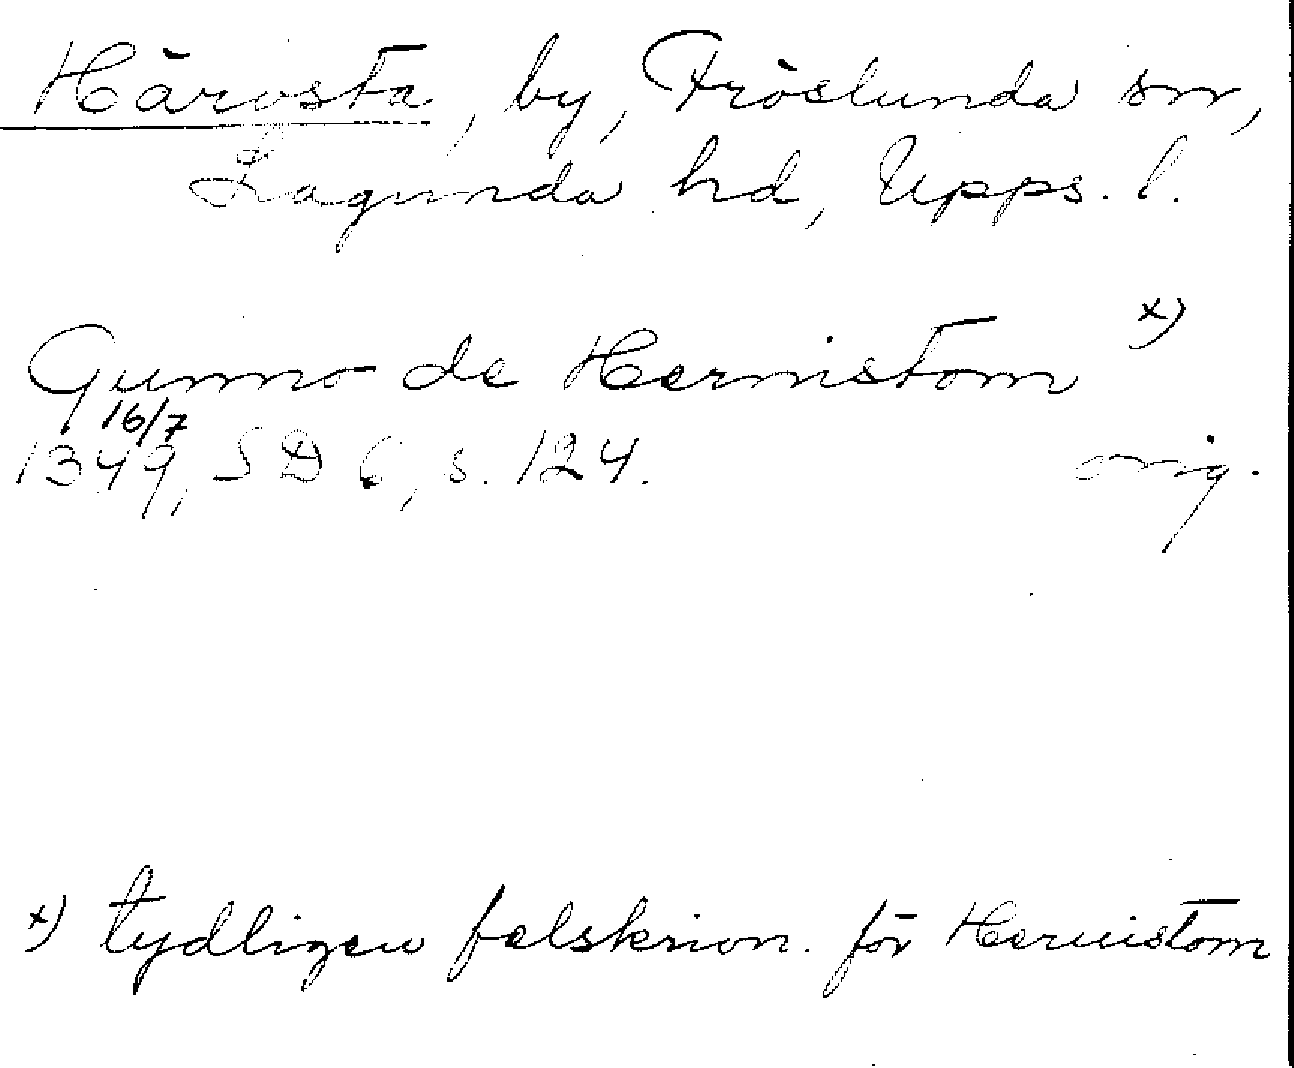 Härvsta, by, Fröslunda sn,
Lagunda hd, Upps. l.
Gunno de Hernistom x)
16/7
1349, SD 6, s. 124. orig.
x) tydligen felskrivn. för Heruistom